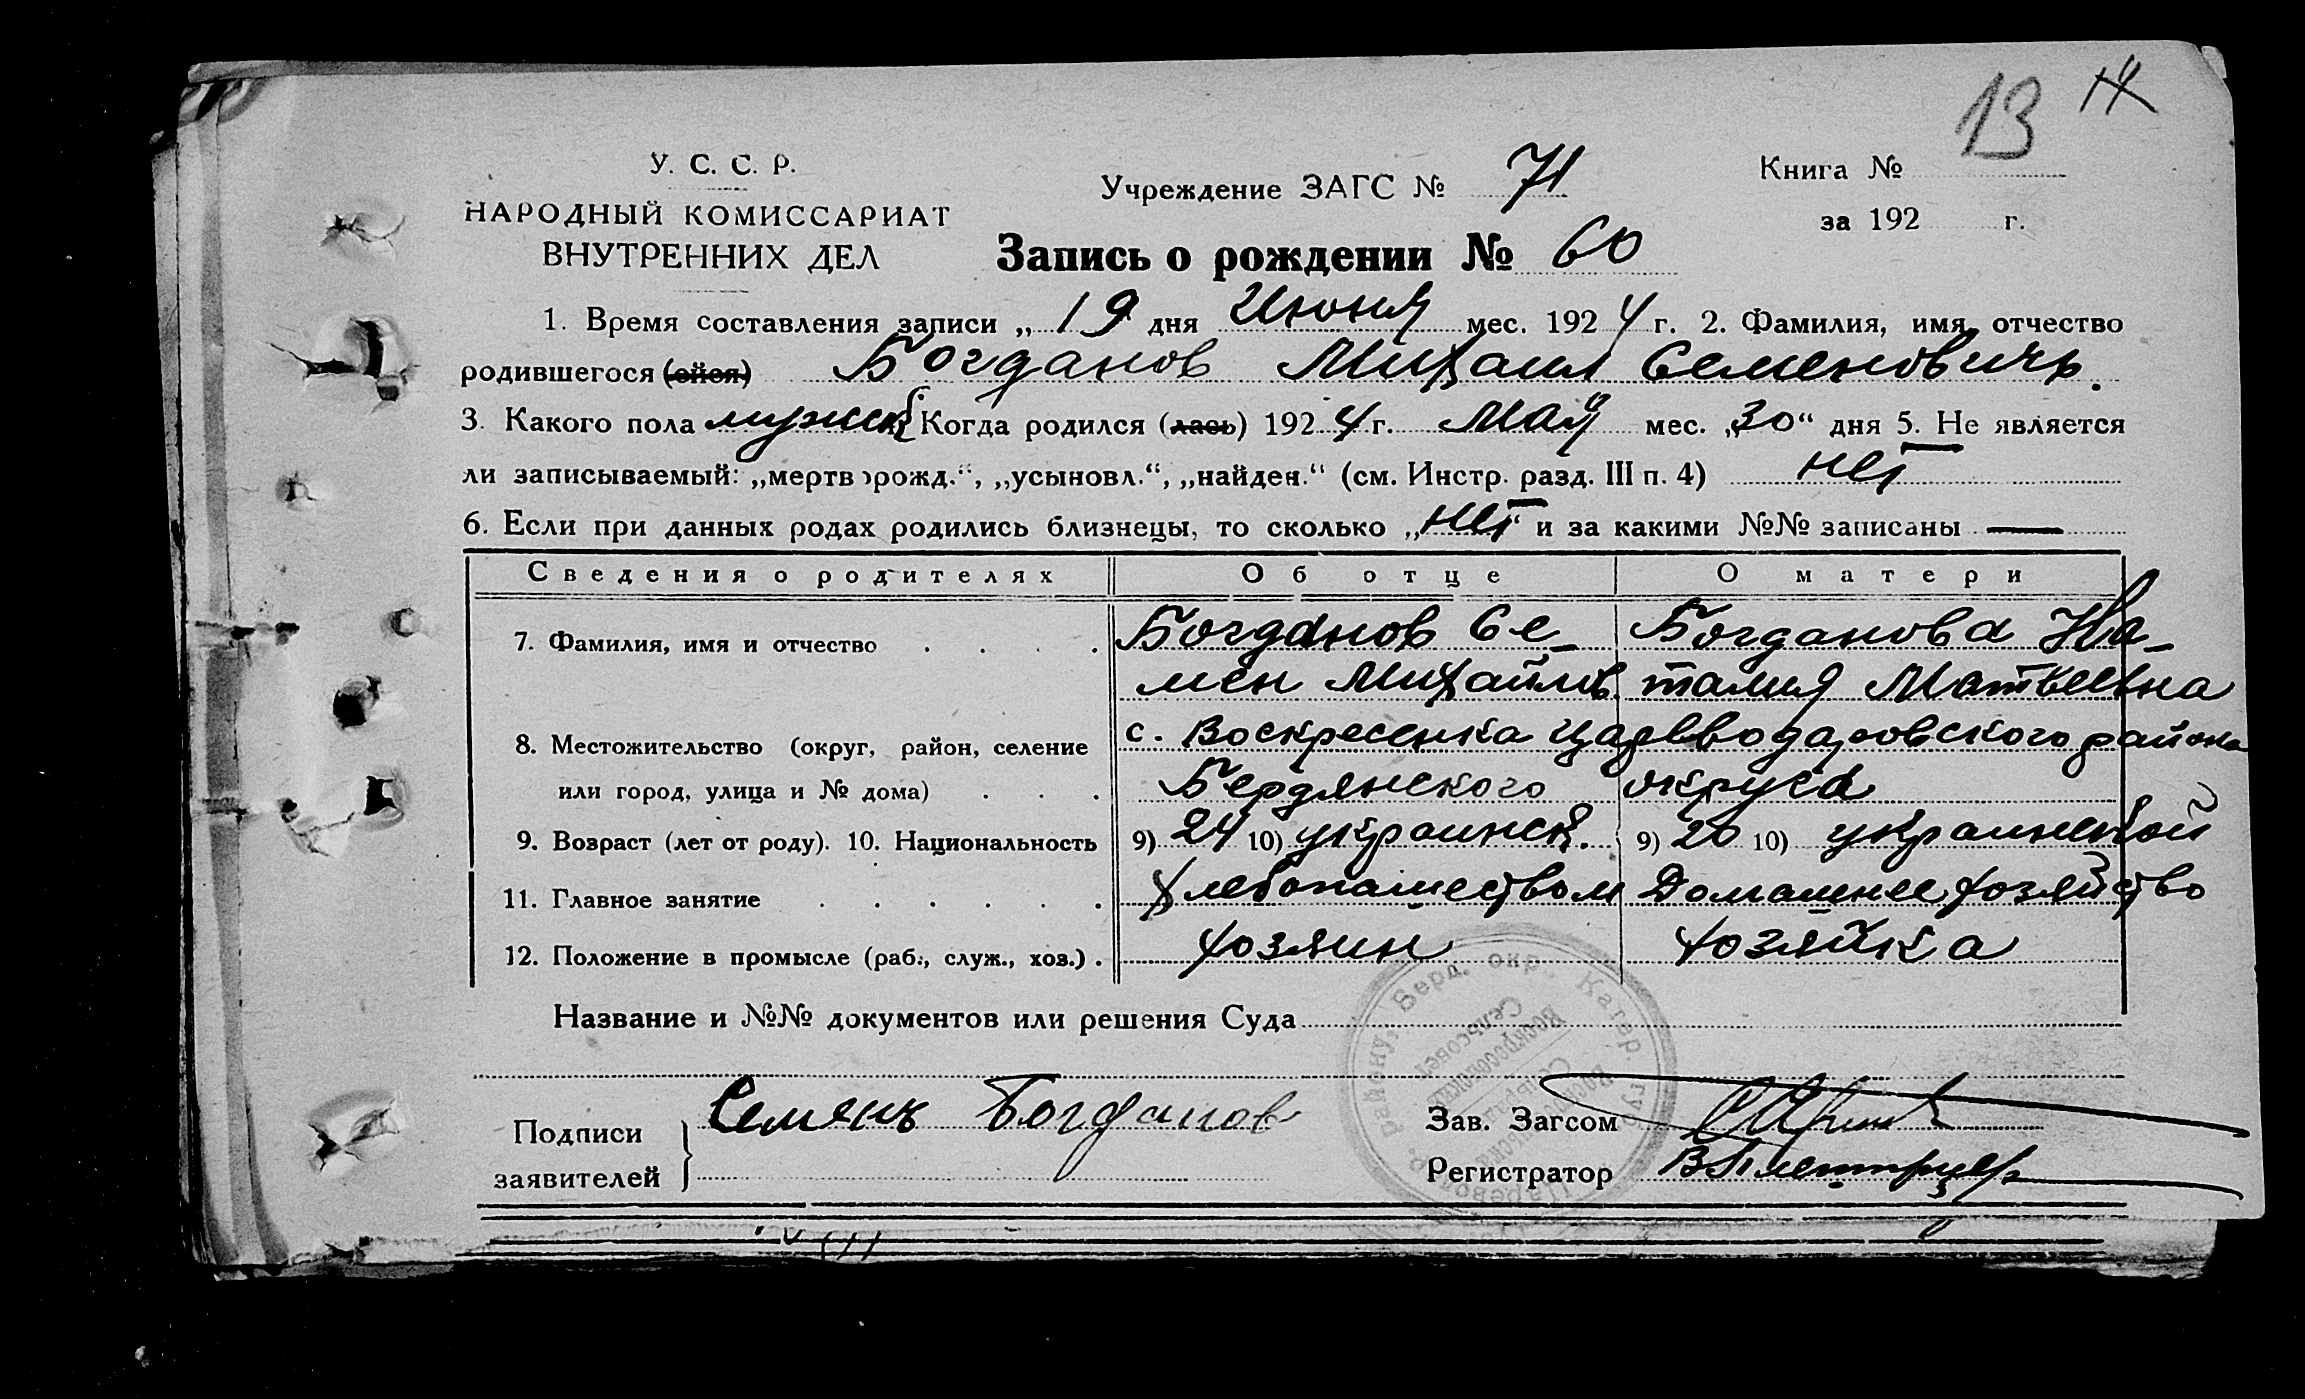 13 14
У. С. С. Р.
НАРОДНЫЙ КОМИССАРИАТ
ВНУТРЕННИХ ДЕЛ
Учреждение ЗАГС № 71
Книга №
за 192 г.
Запись о рождении № 60
1. Время составления записи „ 19 дня Июня мес. 1924 г. 2. Фамилия, имя, отчество
родившегося (ейся) Богданов Михаил Семеновичъ.
3. Какого пола мужск Когда родился (лась) 1924 г. Мая мес. „30“ дня 5. Не является
ли записываемый: „мертворожд.“, „усыновл.“, „найден.“ (см. Инстр. разд. III п. 4) нет
6. Если при данных родах родились близнецы, то сколько „нет“ и за какими №№ записаны —
Сведения о родителях Об отце О матери
7. Фамилия, имя и отчество Богданов Се- Богданова На-
мен Михайлов. талия Матвеевна
8. Местожительство (округ, район, селение с. Воскресенка Царевводаровского района
или город, улица и № дома) Бердянского округа
9. Возраст (лет от роду). 10. Национальность 9) 24 10) украинск. 9) 20 10) украинской
11. Главное занятие Хлебопашеством Домашнее хозяйство
12. Положение в промысле (раб., служ., хоз.) хозяин хозяйка
Название и №№ документов или решения Суда
Подписи
заявителей
Семенъ Богданов
Зав. Загсом
Регистратор
районух Берд. окр., Катер. губ.
Сельсовет